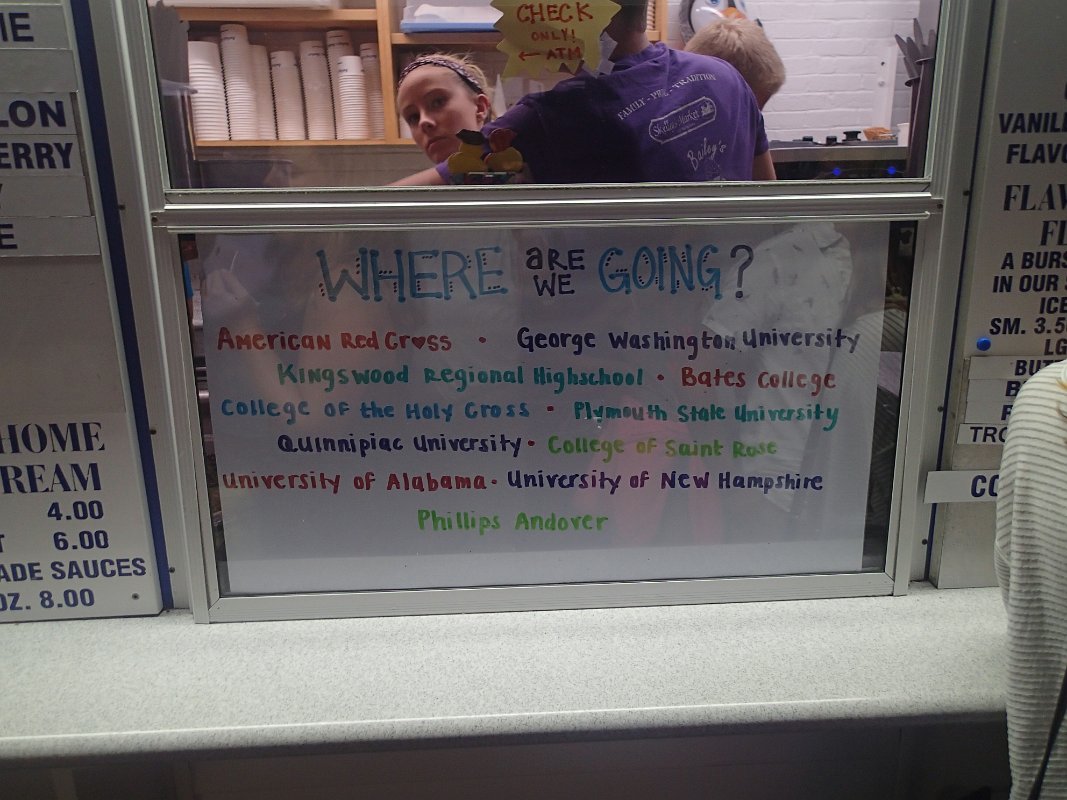 CHECK
ONLY!
← ATM
FAMILY - PRIDE - TRADITION
Bailey's
WHERE ARE WE GOING?
American Red Cross · George Washington University
Kingswood Regional Highschool · Bates College
College of the Holy Cross · Plymouth State University
Quinnipiac University · College of Saint Rose
University of Alabama · University of New Hampshire
Phillips Andover
IE
LON
ERRY
Y
E
HOME
REAM
4.00
T 6.00
ADE SAUCES
OZ. 8.00
VANILL
FLAVO
FLAV
FL
A BURS
IN OUR S
ICE
SM. 3.50
LG
BUT
B
TRO
CO